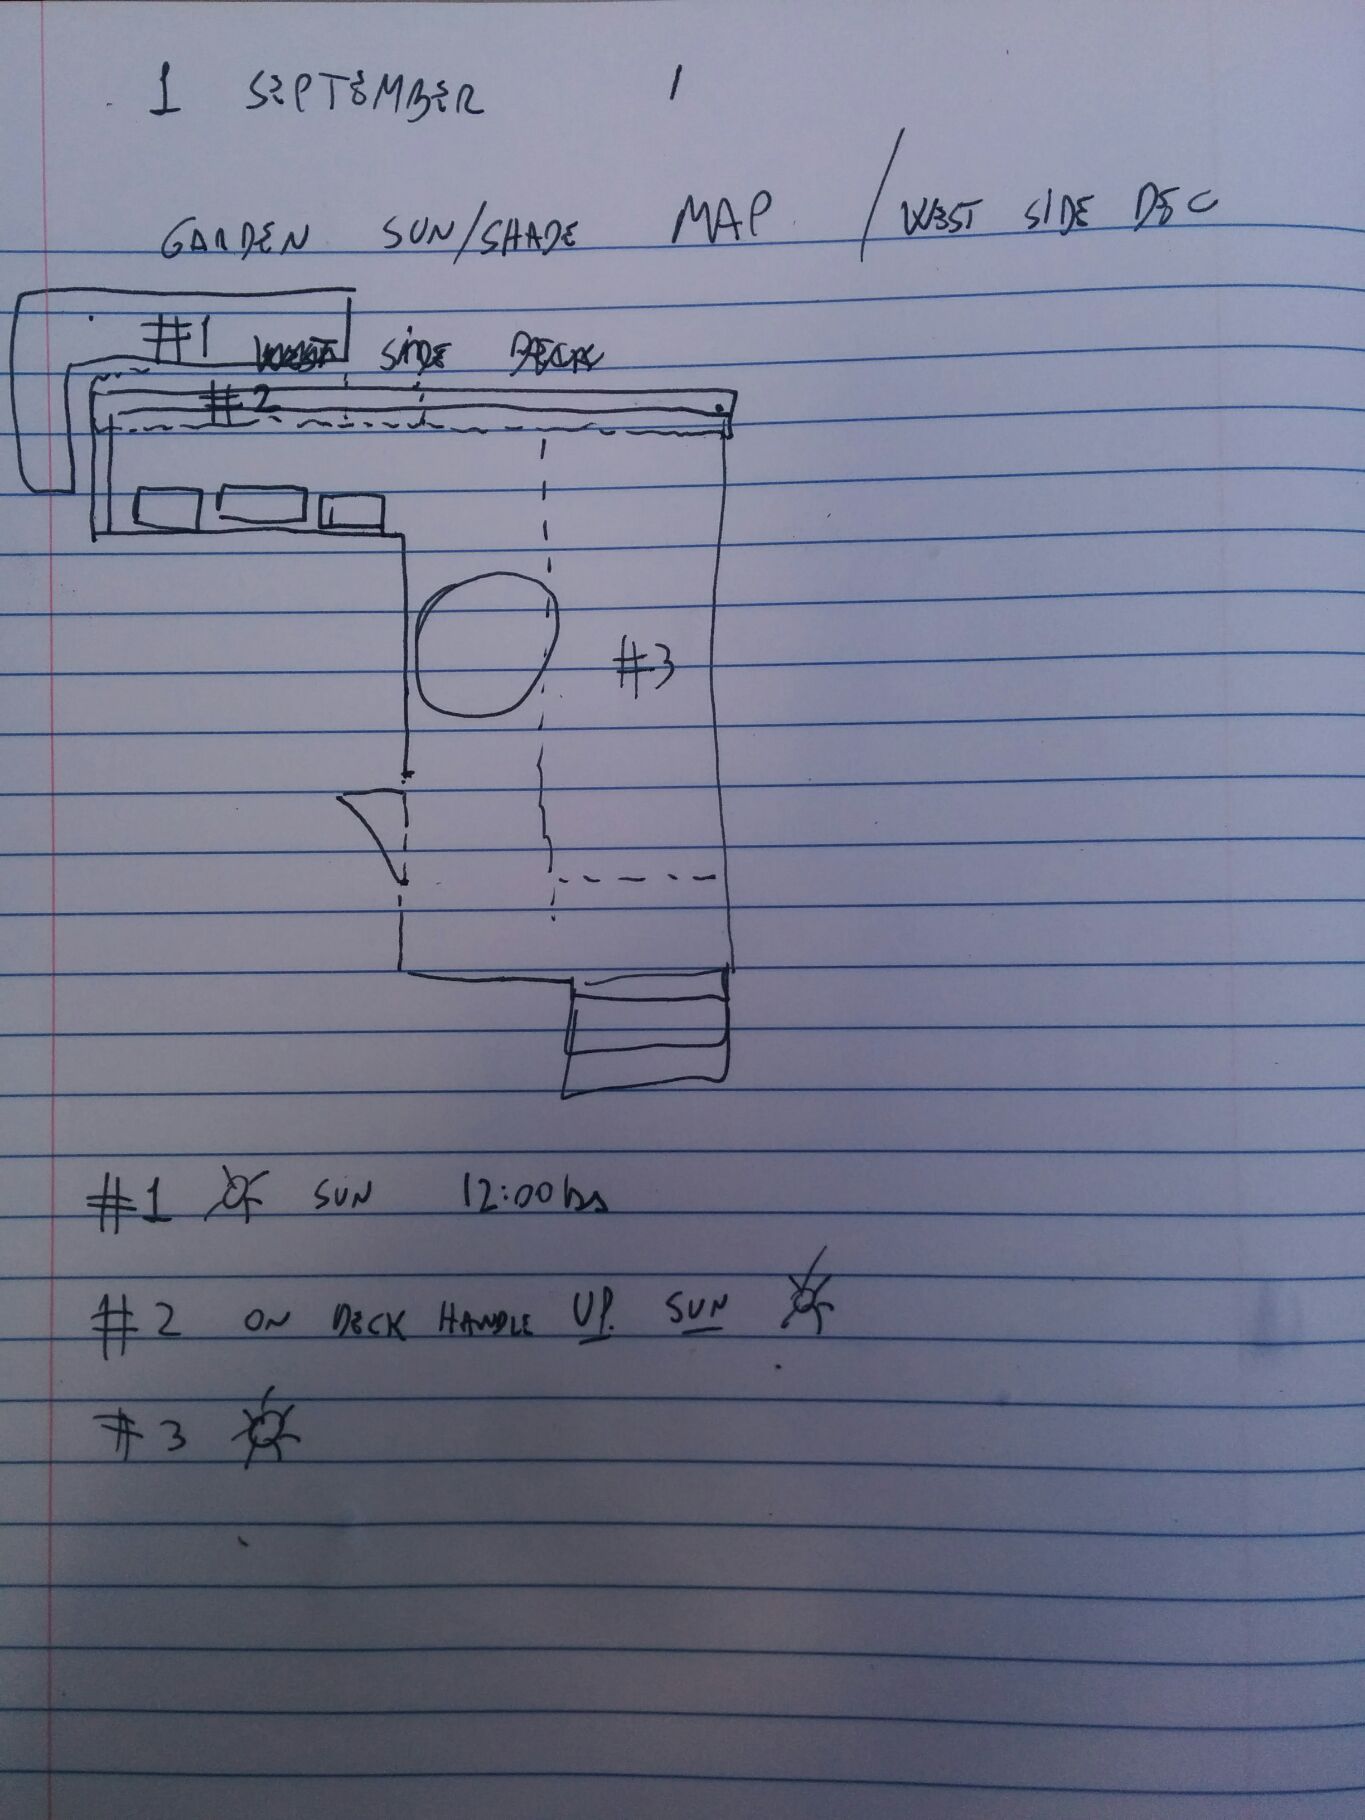 1 SEPTEMBER /
GARDEN SUN/SHADE MAP / WEST SIDE DEC
#1 WEST SIDE DECK
#2
#3
#1 SUN 12:00 hs
#2 ON DECK HANDLE UP. SUN
#3